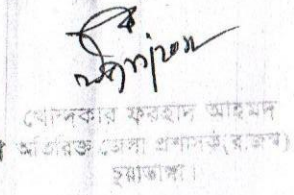 খোন্দকার ফরহাদ আহমদ
অতিরিক্ত জেলা প্রশাসক (রাজস্ব)
চুয়াডাঙ্গা।